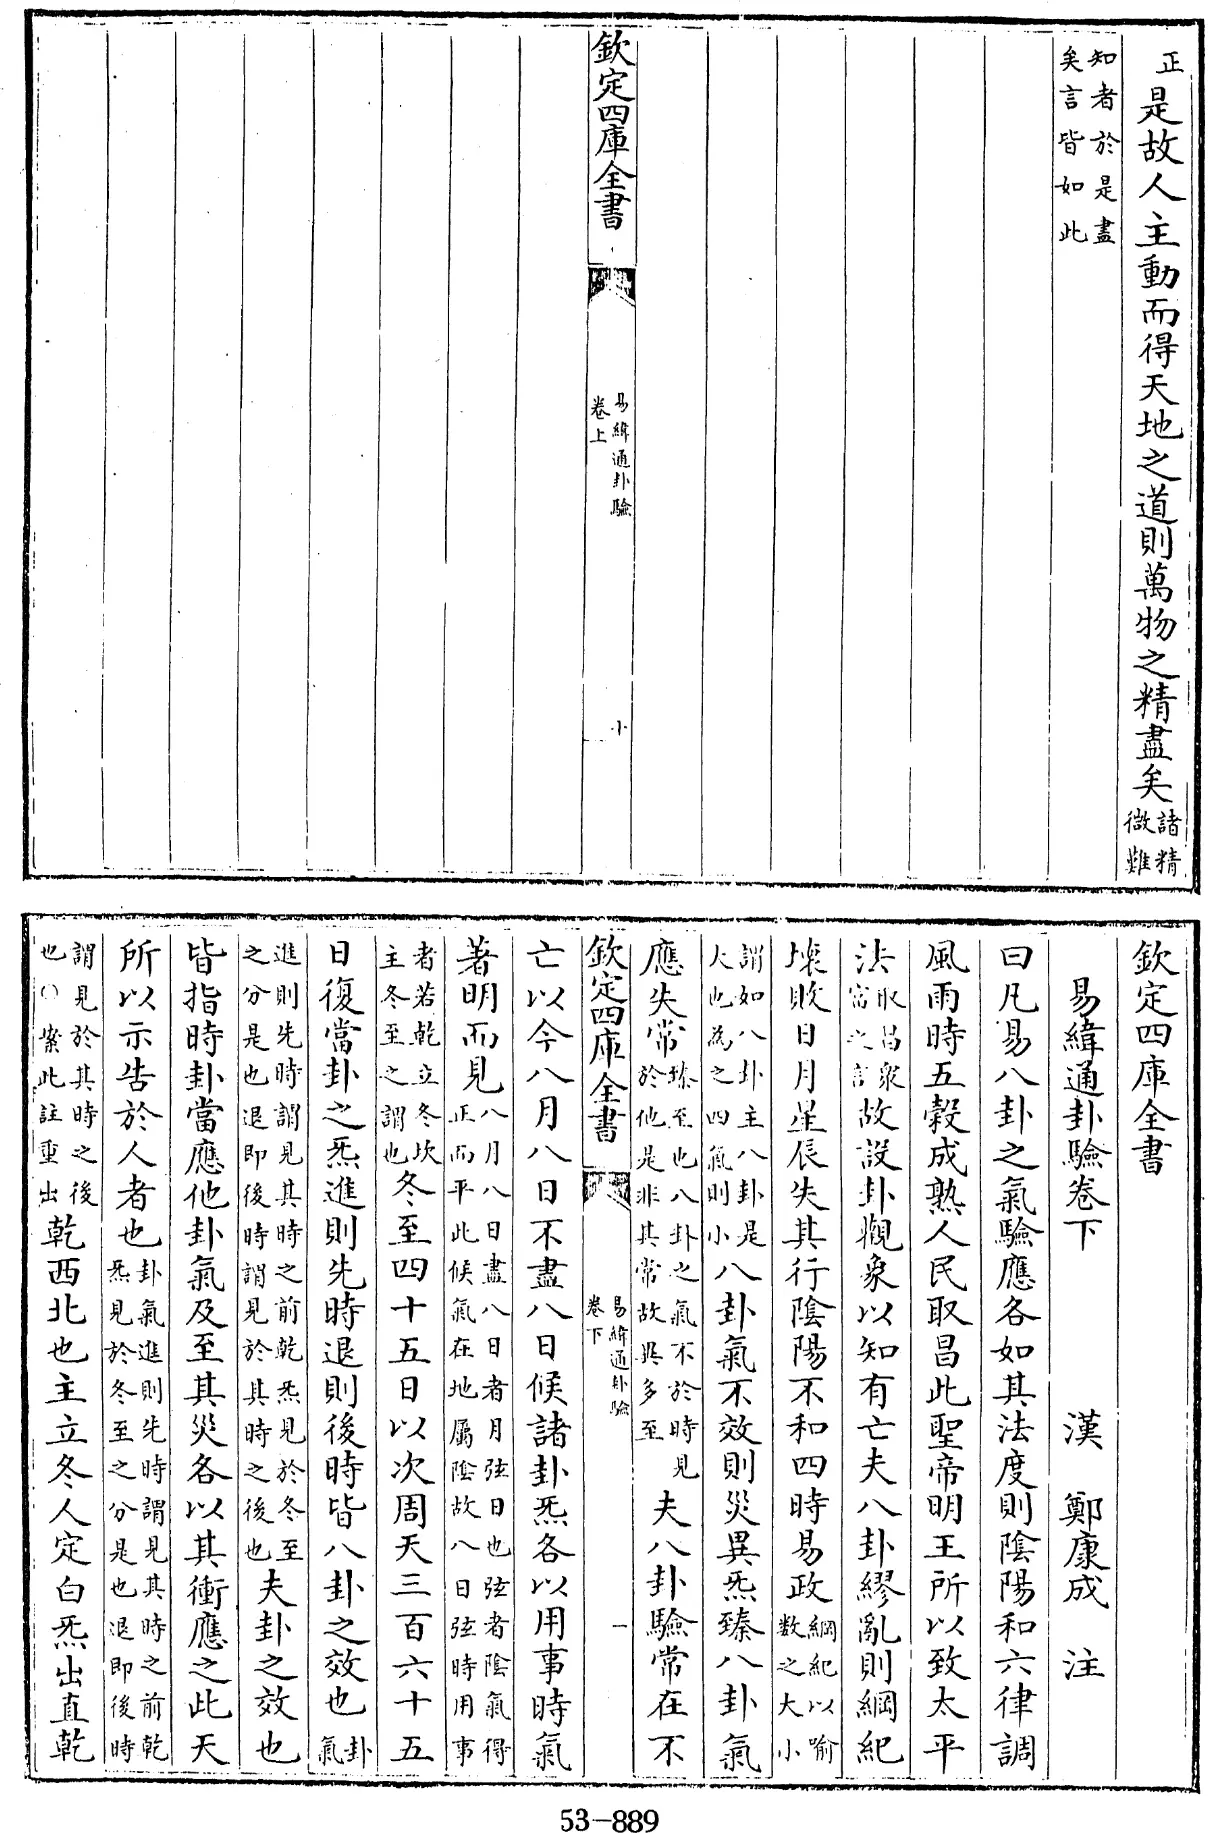 正是故人主動而得天地之道則萬物之精盡矣諸精微難
知者於是盡矣言皆如此
欽定四庫全書
易緯通卦驗
卷上
十
欽定四庫全書
易緯通卦驗卷下
漢 鄭康成 注
曰凡易八卦之氣驗應各如其法度則陰陽和六律調
風雨時五穀成熟人民取昌此聖帝明王所以致太平
法取昌衆富之言故設卦觀象以知有亡夫八卦繆亂則綱紀
壞敗日月星辰失其行陰陽不和四時易政綱紀以喻數之大小
謂如八卦主八卦是大也為之四氣則小八卦氣不效則災異炁臻八卦氣
應失常臻至也八卦之氣不於時見於他是非其常故異多至夫八卦驗常在不
欽定四庫全書
易緯通卦驗
卷下
一
亡以今八月八日不盡八日候諸卦炁各以用事時氣
著明而見八月八日盡八日者月弦日也弦者陰氣得正而平此候氣在地屬陰故八日弦時用事
者若乾立冬坎主冬至之謂也冬至四十五日以次周天三百六十五
日復當卦之炁進則先時退則後時皆八卦之效也卦氣
進則先時謂見其時之前乾炁見於冬至之分是也退即後時謂見於其時之後也夫卦之效也
皆指時卦當應他卦氣及至其災各以其衝應之此天
所以示告於人者也卦氣進則先時謂見其時之前乾炁見於冬至之分是也退即後時
謂見於其時之後也○案此註重出乾西北也主立冬人定白炁出直乾
53-889